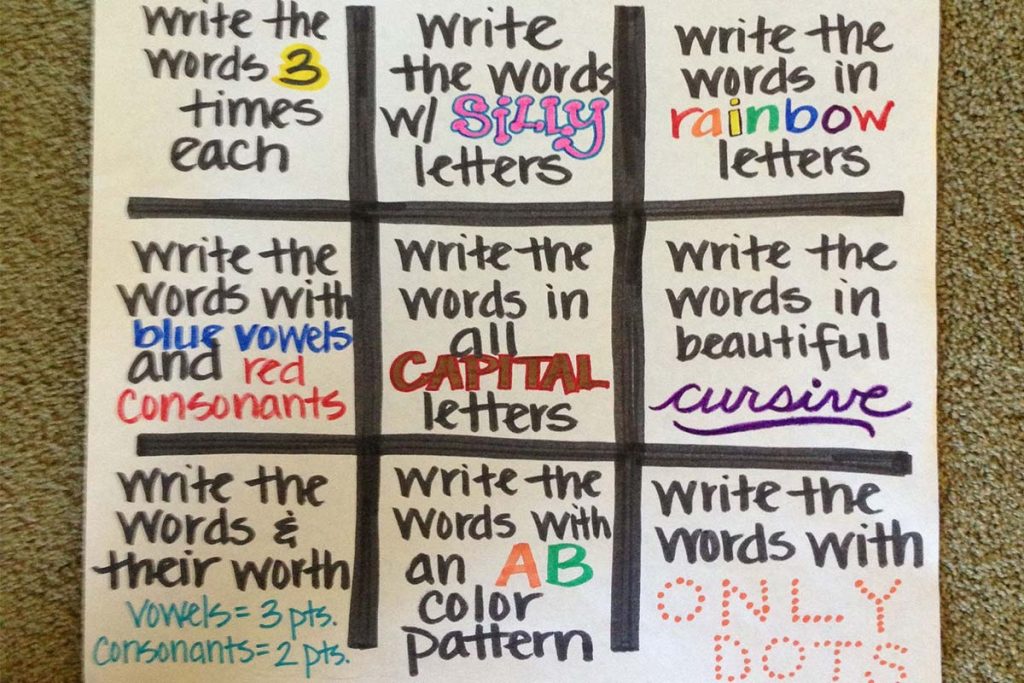 write the
words 3
times
each
write
the words
w/ SiLLY
letters
write the
words in
rainbow
letters
write the
words with
blue vowels
and red
consonants
write the
words in
all
CAPITAL
letters
write the
words in
beautiful
cursive
write the
words &
their worth
vowels = 3 pts.
consonants = 2 pts.
write the
words with
an AB
color
pattern
write the
words with
ONLY
DOTS